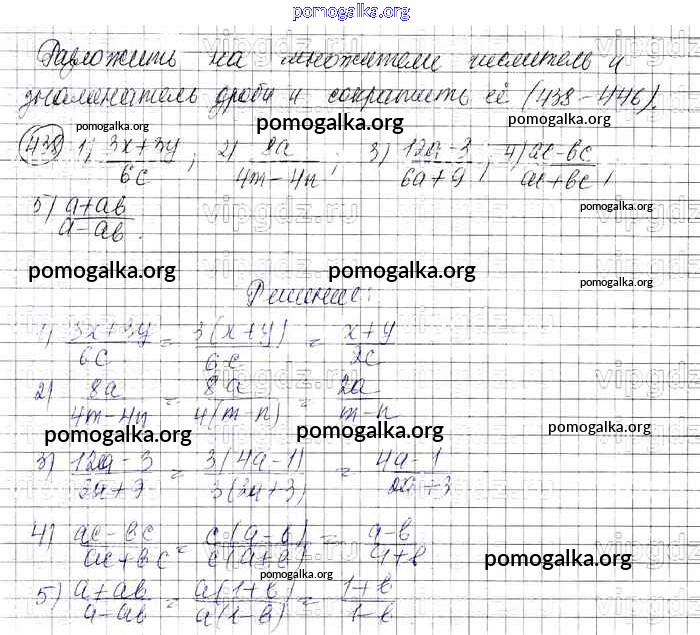 pomogalka.org
Разложить на множители числитель и
знаменатель дроби и сократить её (438-446).
pomogalka.org pomogalka.org pomogalka.org
438 1) (3x+3y)/(6c); 2) (8a)/(4m-4n); 3) (12a-3)/(6a+9); 4) (ac-bc)/(ac+bc);
5) (a+ab)/(a-ab).
pomogalka.org
pomogalka.org pomogalka.org pomogalka.org
Решение:
1) (3x+3y)/(6c) = (3(x+y))/(6c) = (x+y)/(2c)
2) (8a)/(4m-4n) = (8a)/(4(m-n)) = (2a)/(m-n)
pomogalka.org pomogalka.org pomogalka.org
3) (12a-3)/(6a+9) = (3(4a-1))/(3(2a+3)) = (4a-1)/(2a+3)
4) (ac-bc)/(ac+bc) = (c(a-b))/(c(a+b)) = (a-b)/(a+b)
pomogalka.org pomogalka.org
5) (a+ab)/(a-ab) = (a(1+b))/(a(1-b)) = (1+b)/(1-b)